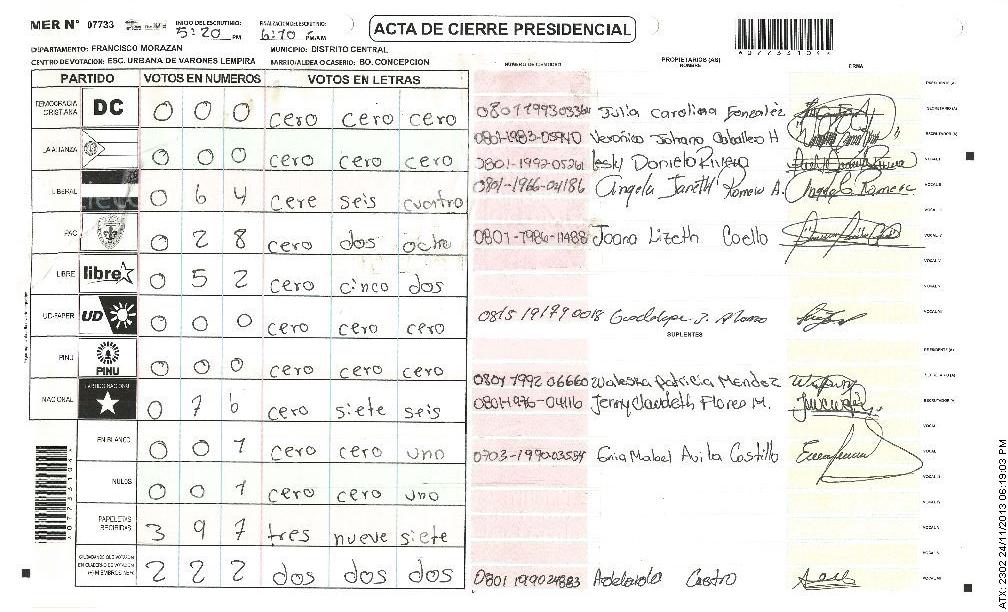 MER N° 07733
INICIO DEL ESCRUTINIO:
5:20 PM
FINALIZACION DEL ESCRUTINIO:
6:10 PM/AM
ACTA DE CIERRE PRESIDENCIAL
DEPARTAMENTO: FRANCISCO MORAZAN
MUNICIPIO: DISTRITO CENTRAL
CENTRO DE VOTACION: ESC. URBANA DE VARONES LEMPIRA
BARRIO/ALDEA O CASERIO: BO. CONCEPCION
PARTIDO VOTOS EN NUMEROS VOTOS EN LETRAS
DEMOCRACIA CRISTIANA DC 0 0 0 cero cero cero
LA ALIANZA 0 0 0 cero cero cero
LIBERAL 0 6 4 cere seis cuatro
PAC 0 2 8 cero dos ocho
LIBRE libre 0 5 2 cero cinco dos
UD-FAPER UD 0 0 0 cero cero cero
PINU PINU 0 0 0 cero cero cero
NACIONAL PARTIDO NACIONAL 0 7 6 cero siete seis
EN BLANCO 0 0 1 cero cero uno
NULOS 0 0 1 cero cero uno
PAPELETAS RECIBIDAS 3 9 7 tres nueve siete
CIUDADANOS QUE VOTARON EN CUADERNO DE VOTACION (+) MIEMBROS MER 2 2 2 dos dos dos
NUMERO DE IDENTIDAD
PROPIETARIOS (AS)
NOMBRE
FIRMA
PRESIDENTE (A)
Julia Carolina Gonzalez SECRETARIO (A)
0801-1983-05940 Veronica Johana Caballero H ESCRUTADOR (A)
0801-1992-05261 Lesly Daniela Rivera VOCAL I
0801-1966-04186 Angela Janeth Romero A. Angela Romero VOCAL II
0801-1986-11488 Joana Lizeth Coello VOCAL IV
Guadalupe J. Alonzo
SUPLENTES
PRESIDENTE (A)
0801 1992 06660 Waleska Patricia Mendez
0801-1976-04116 Jenny Claudeth Flores M. ESCRUTADOR (A)
0703-1990-03554 Enia Mabel Avila Castillo
0801 1990 24883 Adelaida Castro
ATX-2302 24/11/2013 06:19:03 PM